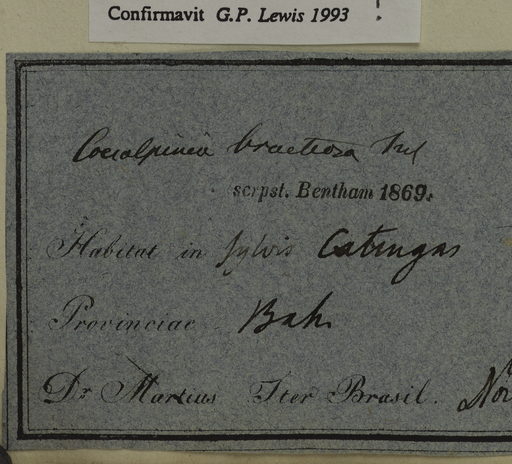 Confirmavit G.P. Lewis 1993
Caesalpinia bracteosa Tul
scrpst. Bentham 1869.
Habitat in sylvis Catingas
Provinciae Bah.
Dr. Martius Iter Brasil.